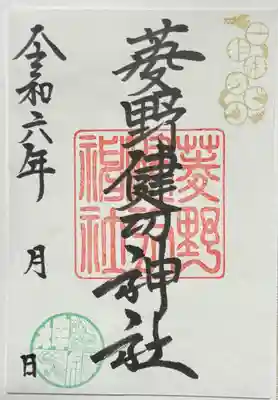 菱野健功神社
菱野
神社
令和六年 月 日